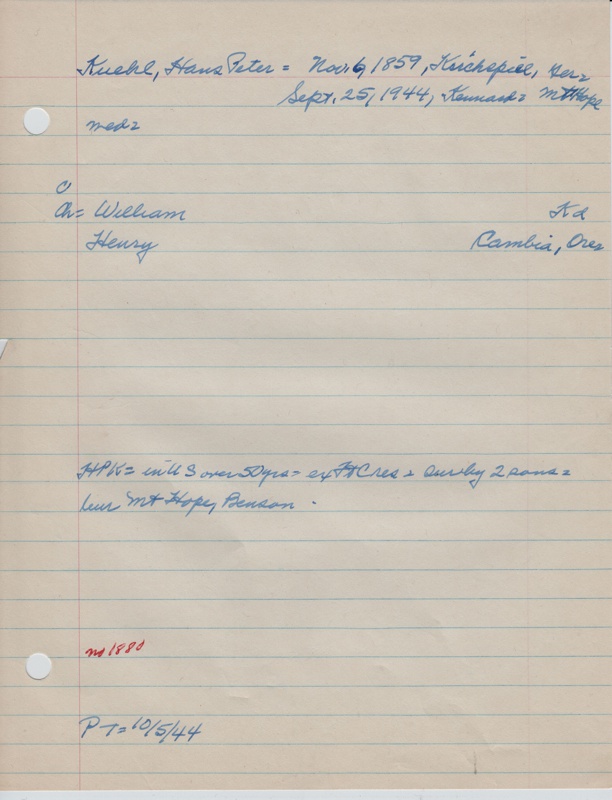 Kuehl, Hans Peter = Nov. 6, 1859, Kirchspiel, Ger=
Sept. 25, 1944, Kennard= Mt Hope
med=
Ch= William Kd
Henry Cambia, Ore=
HPK= in US over 50 yrs= ex Ft C res= surv by 2 sons=
bur Mt Hope, Benson.
no 1880
P T= 10/5/44